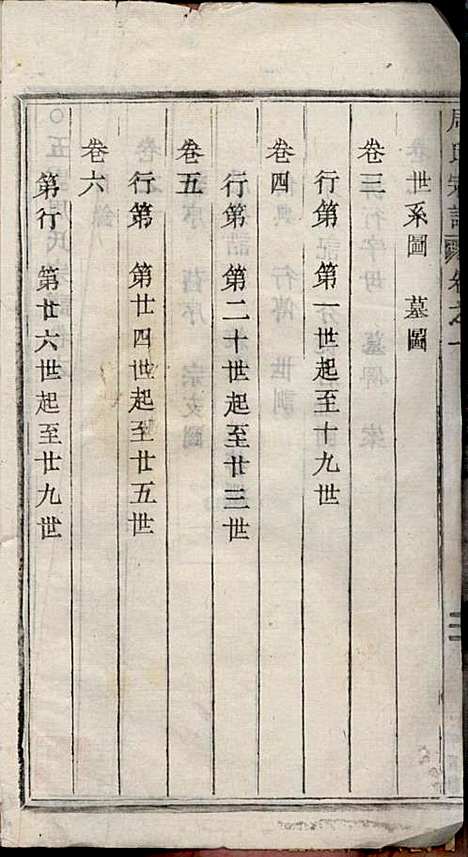 周氏宗譜 卷之一
世系圖 墓圖
卷三
行第 第一世起至十九世
卷四
行第 第二十世起至廿三世
卷五
行第 第廿四世起至廿五世
卷六
第行 第廿六世起至廿九世